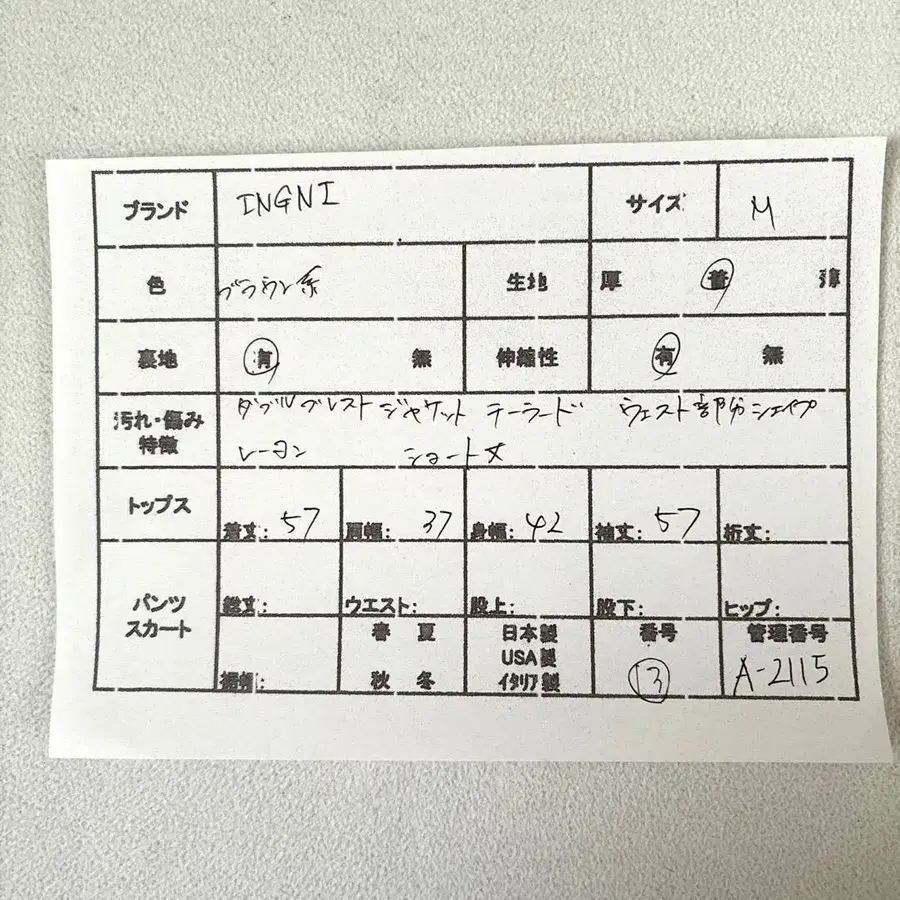 ブランド INGNI サイズ M
色 ブラウン系 生地 厚 普 薄
裏地 有 無 伸縮性 有 無
汚れ・傷み ダブルブレストジャケット テーラード ウェスト部分シェイプ
特徴 レーヨン ショート丈
トップス 着丈: 57 肩幅: 37 身幅: 42 袖丈: 57 裄丈:
パンツ
スカート 総丈: ウエスト: 股上: 股下: ヒップ:
裾幅: 春 夏 日本製 番号 管理番号
USA製
秋 冬 イタリア製 13 A-2115